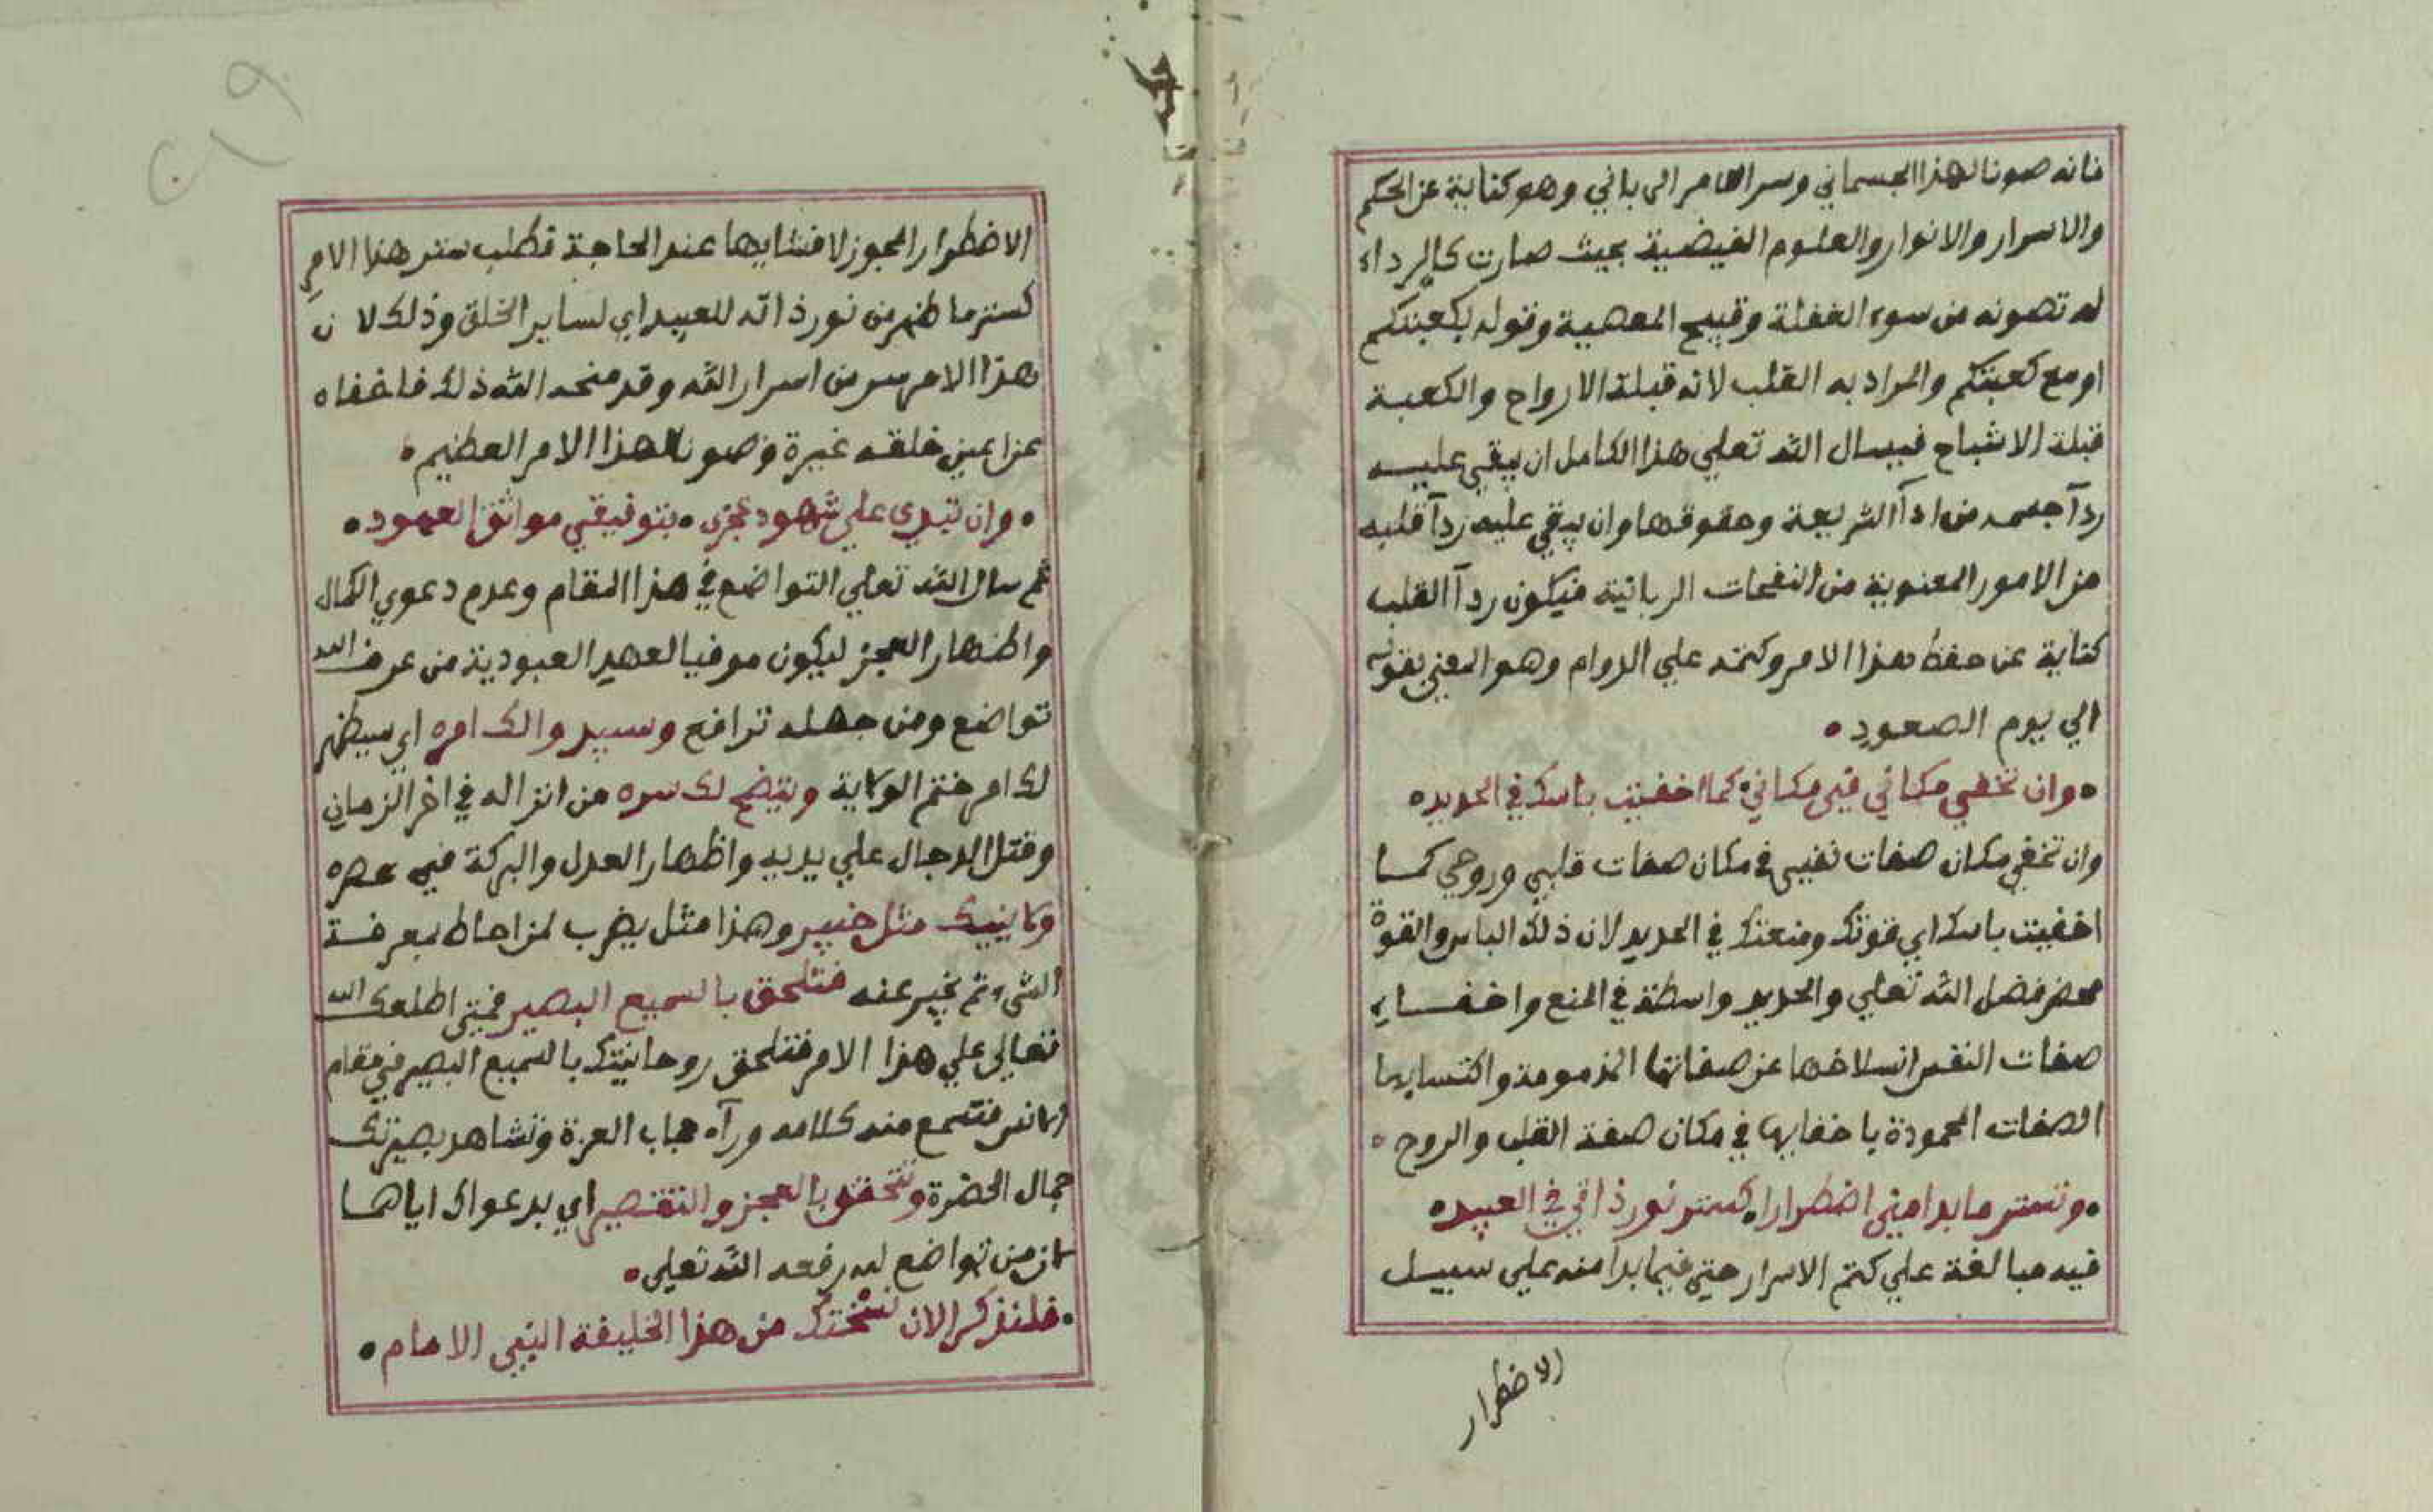 فانه صونا لهذا الجسماني وسر الامر الرباني وهو كناية عن الحكم
والاسرار والانوار والعلوم الفيضية بحيث صارت كالرداء
له تصونه من سوء الغفلة وقبيح المعصية وقوله بكعبتكم
او مع كعبتكم والمراد به القلب لانه قبلة الارواح والكعبة
قبلة الاشباح فيسال الله تعلي هذا الكامل ان يبقي عليه
ردآ جسمه من ادآ الشريعة وحقوقها وان يبقي عليه ردآ قلبه
من الامور المعنوية من النفحات الربانية فيكون ردآ القلب
كناية عن حفظ هذا الامر وكتمه علي الدوام وهو المعني بقوله
الي يوم الصعود •
• وان تخفي مكاني في مكاني • كما اخفيت باسك في الحديد •
وان تخفي مكان صفات نفسي في مكان صفات قلبي وروحي كما
اخفيت باسك اي قوتك ومنعتك في الحديد لان ذلك الباس والقوة
محض فضل الله تعلي والحديد واسطة في المنع واخفـاء
صفات النفس انسلاخها عن صفاتها المذمومة واكتسابها
الصفات المحمودة باخفايها في مكان صفة القلب والروح •
• وتستر ما بدا مني اضطرارا • كستر نور ذاتي في العبيد •
فيه مبالغة علي كتم الاسرار حتي فيما بدا منه علي سبيل
الاضطرار
الاضطرار المجوز لافشايها عند الحاجة فطلب ستر هذا الامر
كستر ما ظهر من نور ذاته للعبيد اي لساير الخلق وذلك لان
هذا الامر سر من اسرار الله وقد منحه الله ذلك فاخفاه
عن اعين خلقه غيرة وصونا لهذا الامر العظيم •
• وان تبدي علي شهود عجزي • بتوفيقي مواثق العهود •
ثم سال الله تعلي التواضع في هذا المقام وعدم دعوي الكمال
واظهار العجز ليكون موفيا لعهد العبودية من عرف الله
تواضع ومن جهله ترافع وسيبدو لك امره اي سيظهر
لك امر ختم الولاية ويتضح لك سره من انزاله في اخر الزمان
وقتل الدجال علي يديه واظهار العدل والبركة في عصره
ولا ينبيك مثل خبير وهذا مثل يضرب لمن احاط بمعرفة
الشيء ثم يخبر عنه فتلحق بالسميع البصير فمتي اطلعك الله
تعالي علي هذا الامر فتلحق روحانيتك بالسميع البصير في مقام
الانس فتسمع منه كلامه ورآء حجاب العزة وتشاهد بصيرتك
جمال الحضرة وتتحقق بالعجز والتقصير اي بدعواك اياهما
لان من تواضع لله رفعه الله تعلي •
• فلنذكر الان نسختك من هذا الخليفة النبي الامام •